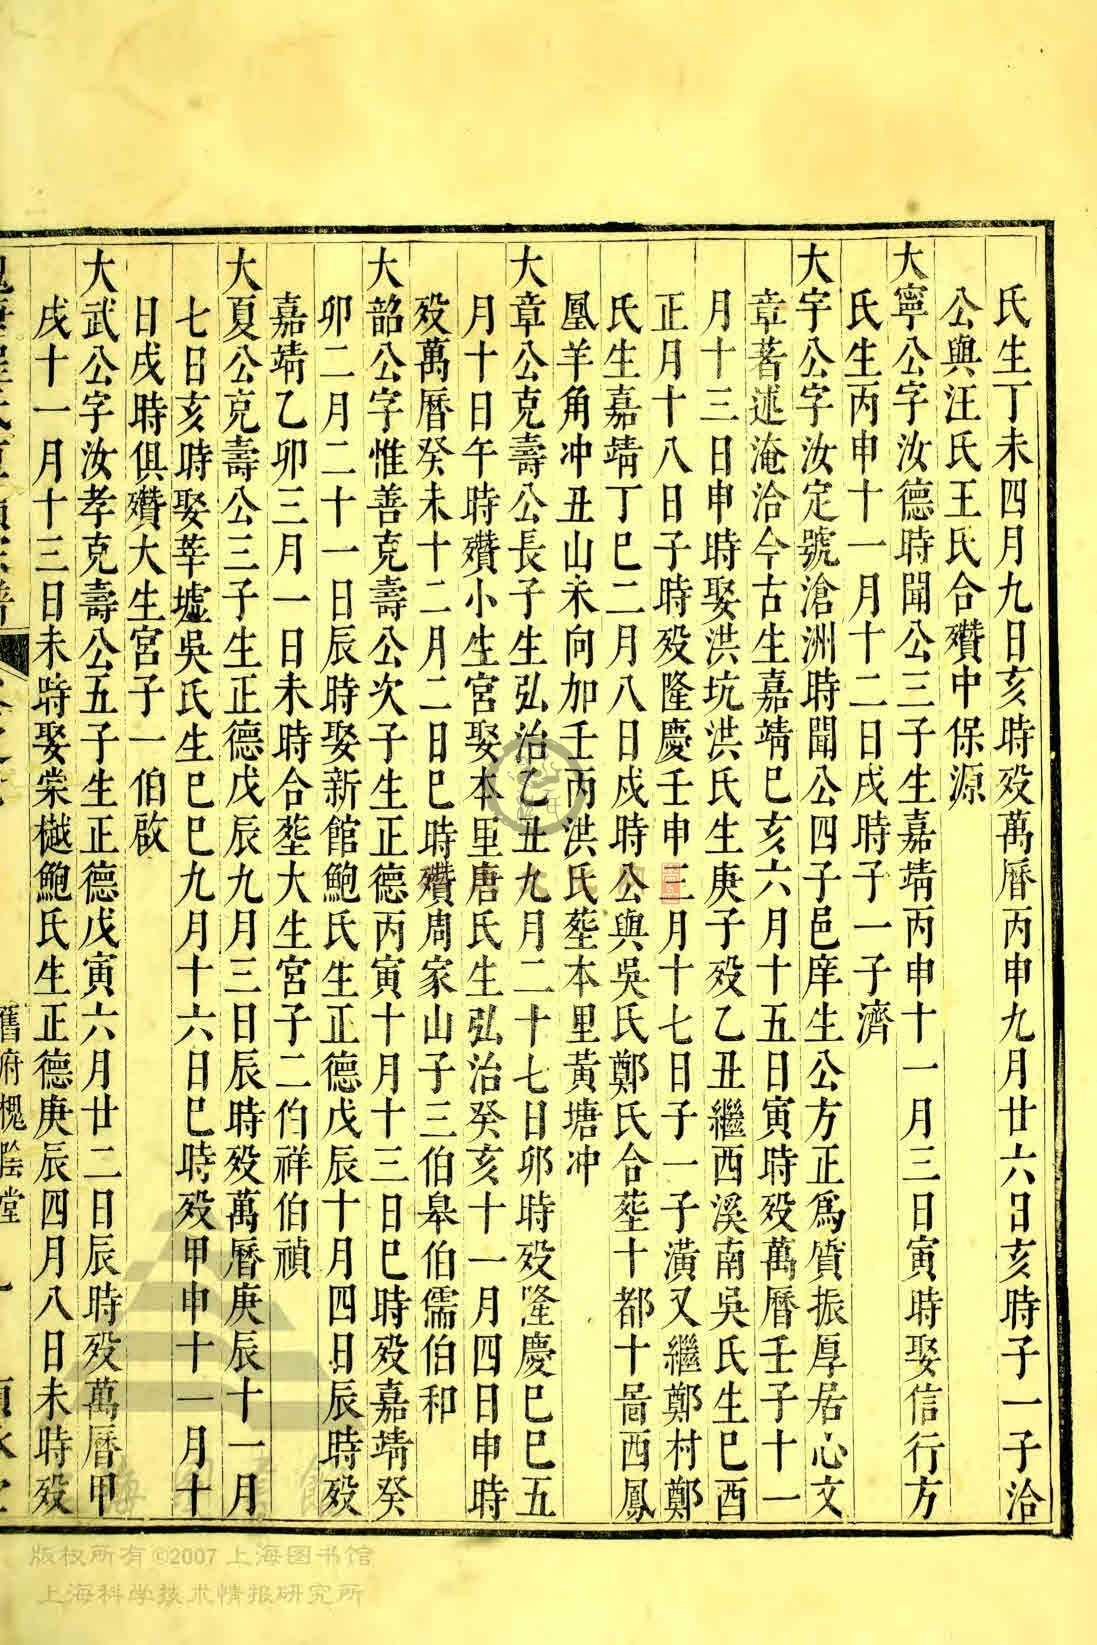 氏生丁未四月九日亥時歿萬曆丙申九月廿六日亥時子一子洽
公與汪氏王氏合殯中保源
大寧公字汝德時聞公三子生嘉靖丙申十一月三日寅時娶信行方
氏生丙申十一月十二日戌時子一子濟
大宇公字汝定號滄洲時聞公四子邑庠生公方正為質振厚居心文
章著述淹洽今古生嘉靖己亥六月十五日寅時歿萬曆壬子十一
月十三日申時娶洪坑洪氏生庚子歿乙丑繼西溪南吳氏生己酉
正月十八日子時歿隆慶壬申三月十七日子一子潢又繼鄭村鄭
氏生嘉靖丁巳二月八日戌時公與吳氏鄭氏合塟十都十啚西鳳
凰羊角冲丑山未向加壬丙洪氏塟本里黃塘冲
大章公克壽公長子生弘治乙丑九月二十七日卯時歿隆慶己巳五
月十日午時殯小生宮娶本里唐氏生弘治癸亥十一月四日申時
歿萬曆癸未十二月二日巳時殯周家山子三伯皋伯儒伯和
大韶公字惟善克壽公次子生正德丙寅十月十三日巳時歿嘉靖癸
卯二月二十一日辰時娶新館鮑氏生正德戊辰十月四日辰時歿
嘉靖乙卯三月一日未時合塟大生宮子二伯祥伯禎
大夏公克壽公三子生正德戊辰九月三日辰時歿萬曆庚辰十一月
七日亥時娶莘墟吳氏生己巳九月十六日巳時歿甲申十一月十
日戌時俱殯大生宮子一伯啟
大武公字汝孝克壽公五子生正德戊寅六月廿二日辰時歿萬曆甲
戌十一月十三日未時娶棠樾鮑氏生正德庚辰四月八日未時歿
舊府槐陰堂
版权所有©2007 上海图书馆
上海科学技术情报研究所